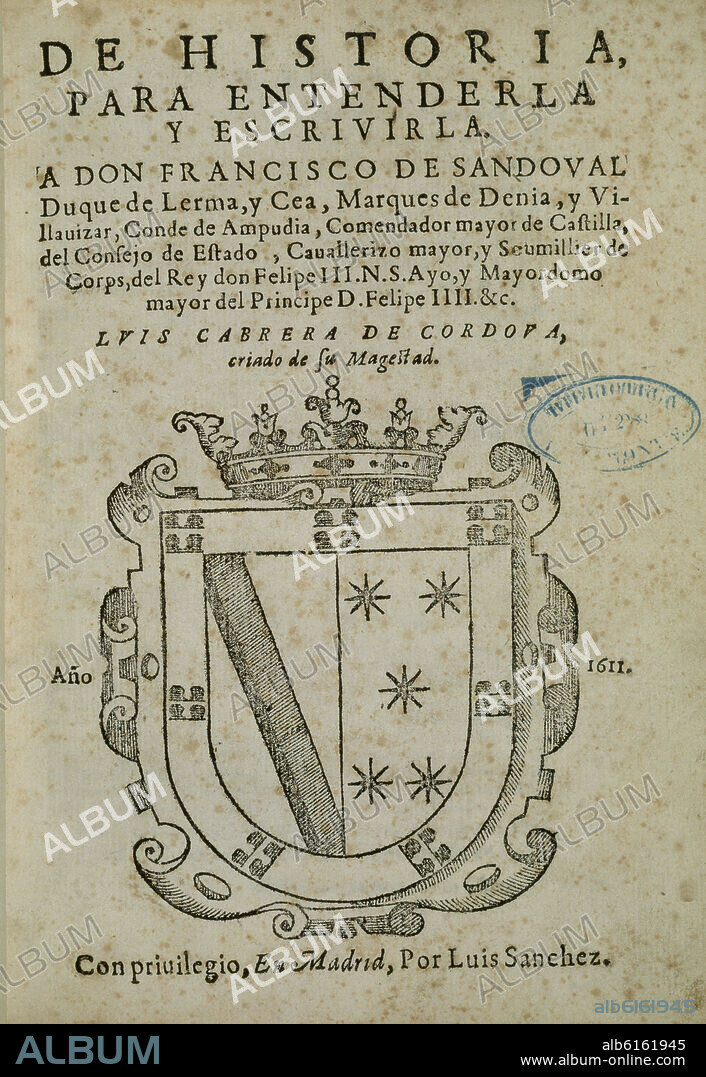 DE HISTORIA,
PARA ENTENDERLA
Y ESCRIVIRLA.
A DON FRANCISCO DE SANDOVAL
Duque de Lerma, y Cea, Marques de Denia, y Vi-
llauizar, Conde de Ampudia, Comendador mayor de Caſtilla,
del Conſejo de Eſtado, Cauallerizo mayor, y Seumillier de
Corps, del Rey don Felipe III. N. S. Ayo, y Mayordomo
mayor del Principe D. Felipe IIII. &c.
LVIS CABRERA DE CORDOVA,
criado de ſu Mageſtad.
Año 1611.
Con priuilegio, En Madrid, Por Luis Sanchez.
alb6161945
ALBUM
alb6161945
www.album-online.com